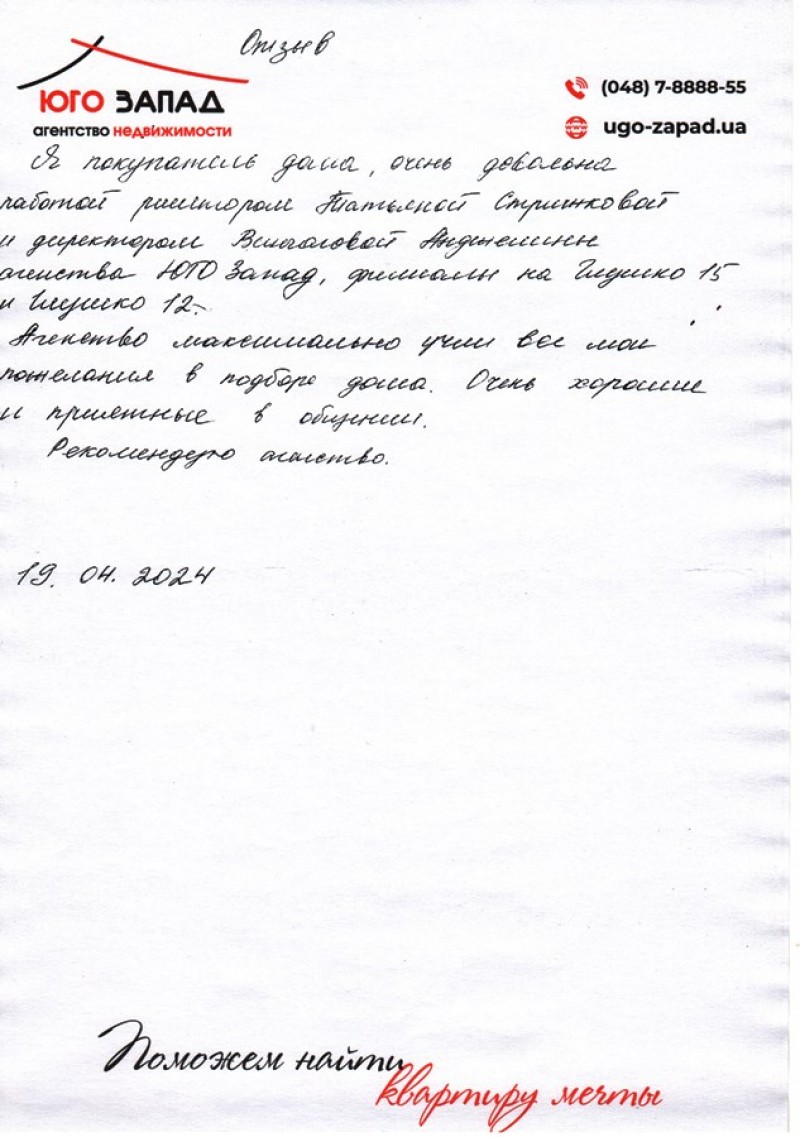 Отзыв
ЮГО ЗАПАД
агентство недвижимости
(048) 7-8888-55
ugo-zapad.ua
Я покупатель дома, очень довольна
работой риелтором Татьяной Стринковой
и директором Анджелины
агенства ЮГО Запад, филиалы на Глушко 15
и Глушко 12.
Агенство максимально учли все мои
пожелания в подборе дома. Очень хорошие
и приятные в общении.
Рекомендую агенство.
19. 04. 2024
Поможем найти
квартиру мечты